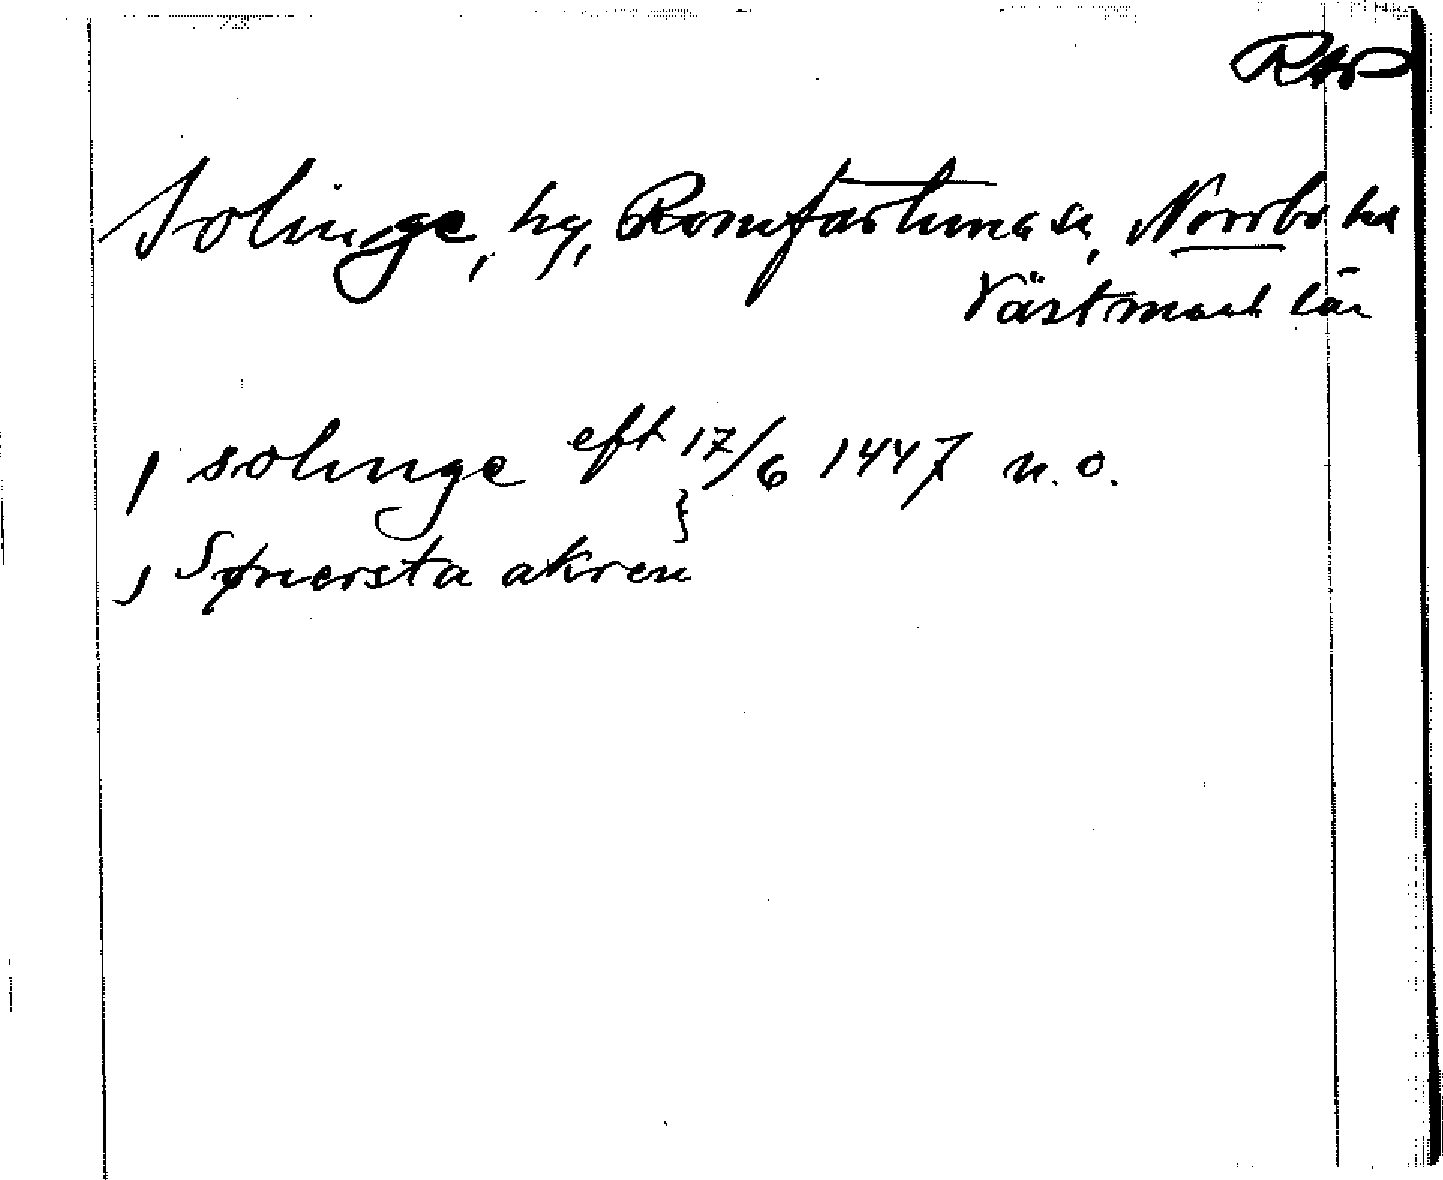 RAP
Solinge, by, Romfartuna sn, Norrbo hd
Västmanl län
, solinge eft 17/6 1447 n.o.
, Sønersta akren